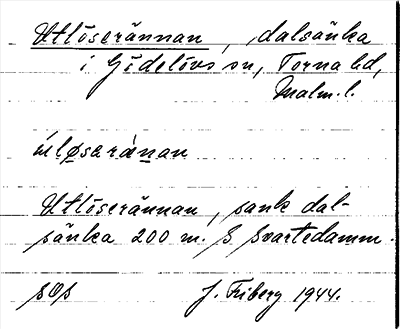 Utlöserännan, dalsänka
i Gödelövs sn, Torna hd,
Malm. l.
ú̄løseràn̄an
Utlöserännan, sank dal-
sänka 200 m. S Svartedamm.
sOs J. Friberg 1944.